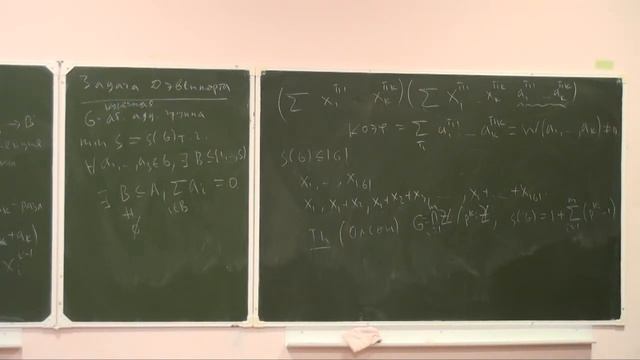 Задача Дэвенпорта
конечная
G - аб. адд. группа
min s = s(G) т. ч.
∀ a₁, …, aₛ ∈ G, ∃ B ⊆ {1, …, s}
∃ B ⊆ A, ∑_{i∈B} aᵢ = 0
B ≠ ∅
(∑ x₁^{π₁} … x_k^{π_k}) (∑ x₁^{π₁} … x_k^{π_k} a₁^{π₁} … a_k^{π_k})
коэф = ∑_π a₁^{π₁} … a_k^{π_k} = W(a₁, …, a_k) ≠ 0
s(G) ≤ |G|
x₁, …, x_{|G|}
x₁, x₁+x₂, x₁+x₂+x₃, …, x₁+…+x_{|G|}
Th (Олсон) G = ∏_{i=1}^{n} ℤ/p^{kᵢ}ℤ, s(G) = 1 + ∑_{i=1}^{n} (p^{kᵢ} − 1)